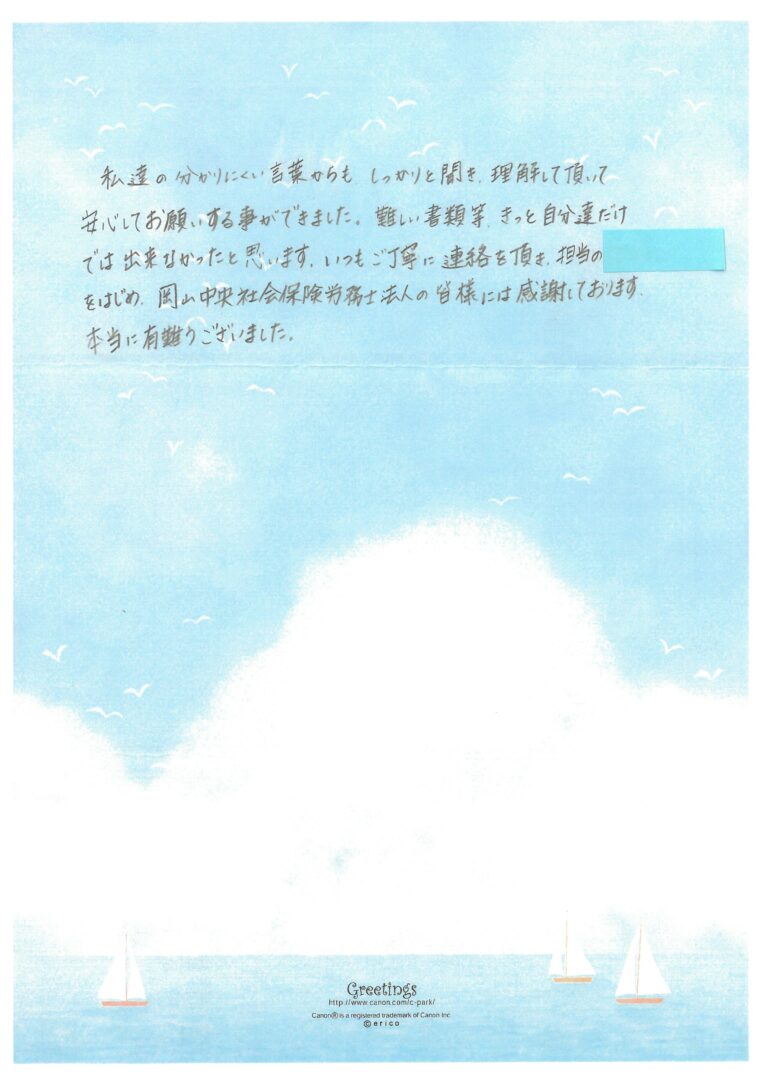 私達の分かりにくい言葉からも しっかりと聞き、理解して頂いて
安心してお願いする事ができました。難しい書類等、きっと自分達だけ
では出来なかったと思います。いつもご丁寧に連絡を頂き、担当の
をはじめ、岡山中央社会保険労務士法人の皆様には感謝しております。
本当に有難うございました。
Greetings
http://www.canon.com/c-park/
Canon® is a registered trademark of Canon Inc
©erico